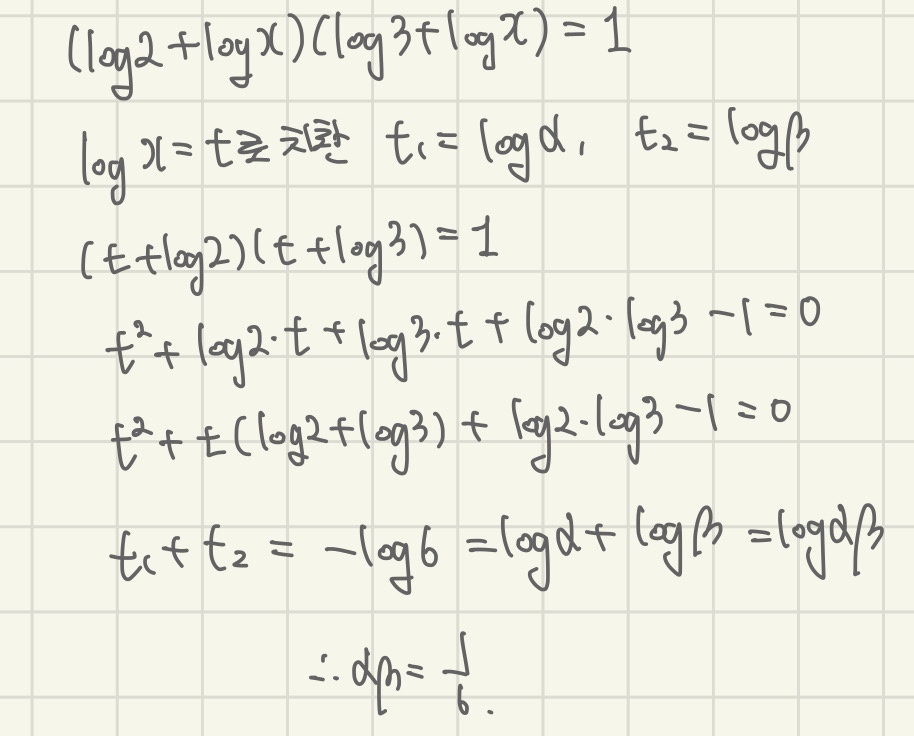 (log2+logx)(log3+logx)=1
logx=t로 치환 t₁=logα, t₂=logβ
(t+log2)(t+log3)=1
t²+log2·t+log3·t+log2·log3-1=0
t²+t(log2+log3)+log2·log3-1=0
t₁+t₂=-log6=logα+logβ=logαβ
∴αβ=1/6.